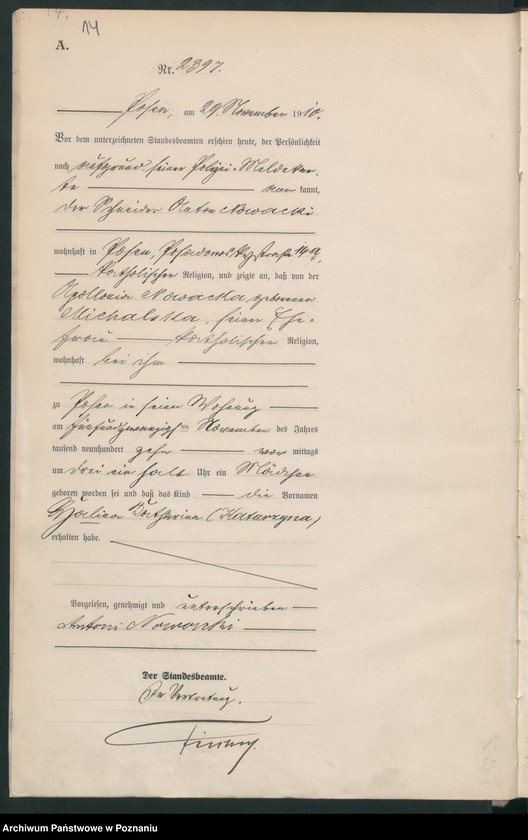 14
A.
Nr. 2397.
Posen, am 29. November 1910.
Vor dem unterzeichneten Standesbeamten erschien heute, der Persönlichkeit
nach auf Grund seiner Polizei-Meldekar-
te kannt,
der Schneider Anton Nowacki
wohnhaft in Posen, Posadowskystraße 14a,
katholischer Religion, und zeigte an, daß von der
Apollonia Nowacka geborenen
Michalska, seiner Ehe-
frau katholischer Religion,
wohnhaft bei ihm
zu Posen in seiner Wohnung
am fünfundzwanzigsten November des Jahres
tausend neunhundert zehn vor mittags
um drei ein halb Uhr ein Mädchen
geboren worden sei und daß das Kind die Vornamen
Katharina (Katarzyna)
erhalten habe.
Vorgelesen, genehmigt und unterschrieben
Antoni Nowacki
Der Standesbeamte.
In Vertretung.
Archiwum Państwowe w Poznaniu